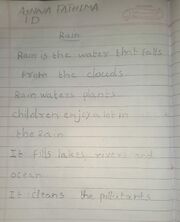 AJNNA FATHIMA
1D
Rain
Rain is the water that falls
from the clouds.
Rain waters plants
children enjoy a lot in
the Rain
It fills lakes, rivers and
ocean
It cleans the pollutants